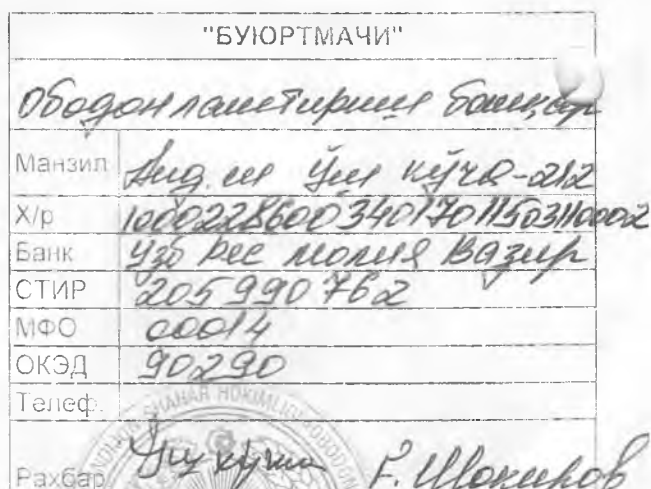 "БУЮРТМАЧИ"
Ободонлаштириш бошқар
Манзил Анд. ш Ўш кўча-212
Х/р 100022860034017011503110002
Банк Ўзб Рес молия Вазир
СТИР 205990762
МФО 00014
ОКЭД 90290
Телеф.
SHAHAR HOKIMLIGI OBODON
Рахбар F. Шокиров